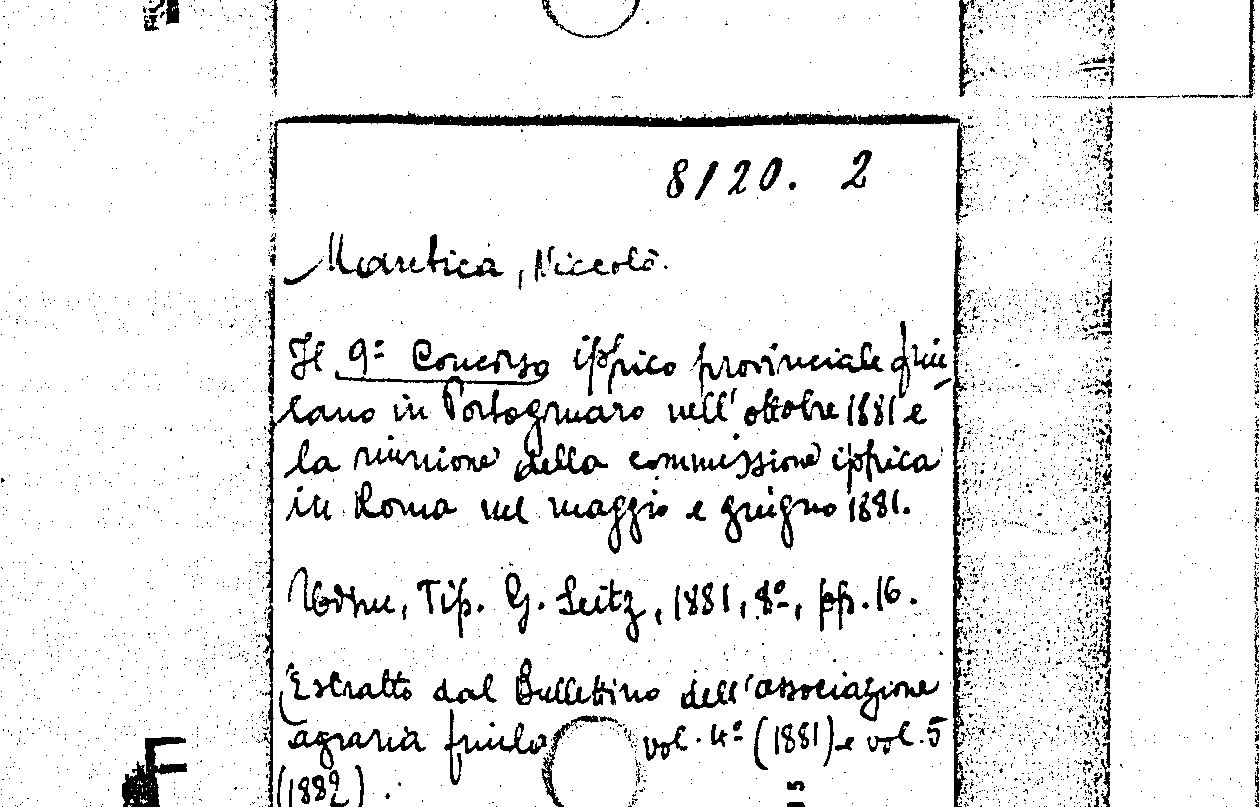 8120. 2
Mantica, Niccolò.
Il 9º Concorso ippico provinciale friu
lano in Portogruaro nell'ottobre 1881 e
la riunione della commissione ippica
in Roma nel maggio e giugno 1881.
Udine, Tip. G. Seitz, 1881, 8º, pp. 16.
(Estratto dal Bullettino dell'associazione
agraria friula vol. 4º (1881) e vol. 5
(1882).